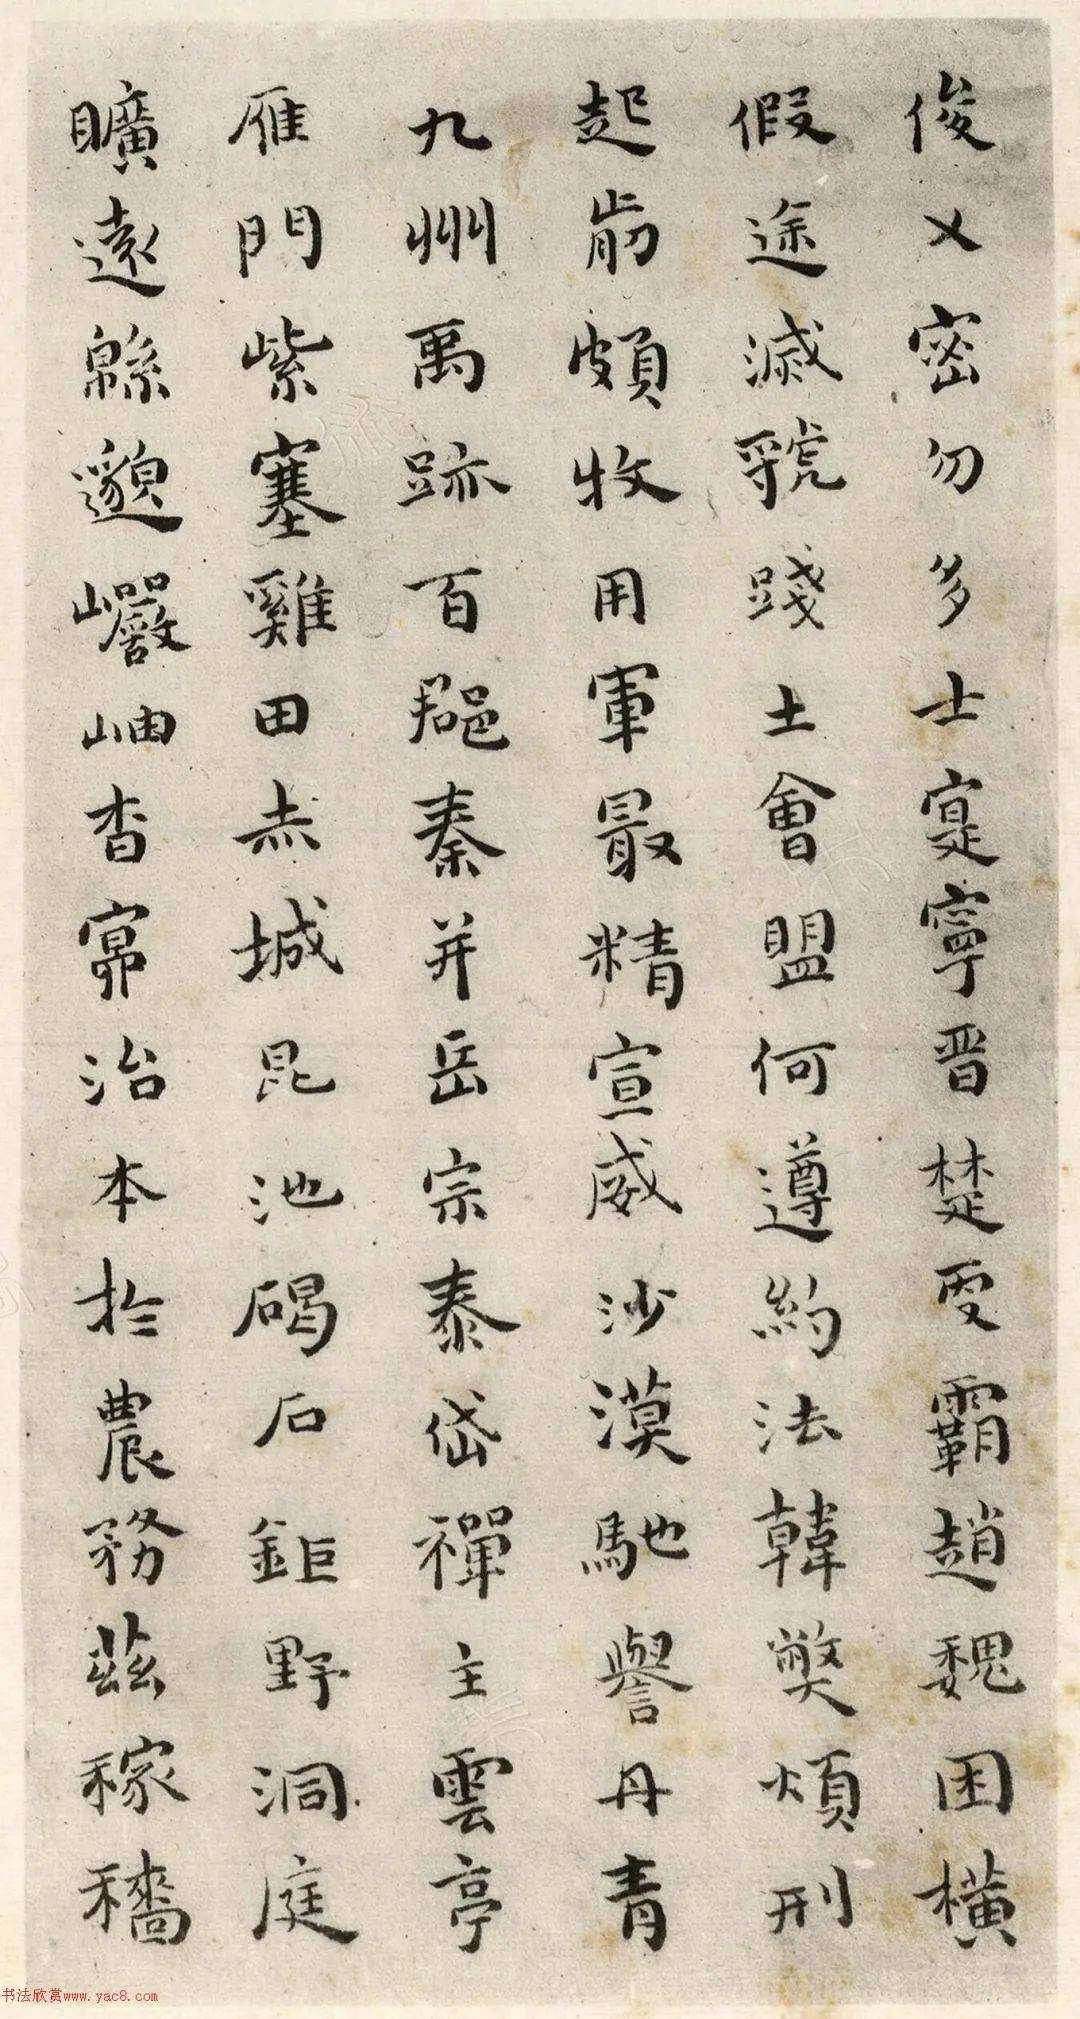 俊乂密勿多士寔寧晉楚更霸趙魏困橫
假途滅虢踐土會盟何遵約法韓弊煩刑
起翦頗牧用軍最精宣威沙漠馳譽丹青
九州禹跡百郡秦并岳宗泰岱禪主雲亭
雁門紫塞雞田赤城昆池碣石鉅野洞庭
曠遠緜邈巖岫杳冥治本於農務茲稼穡
书法欣赏www.yac8.com